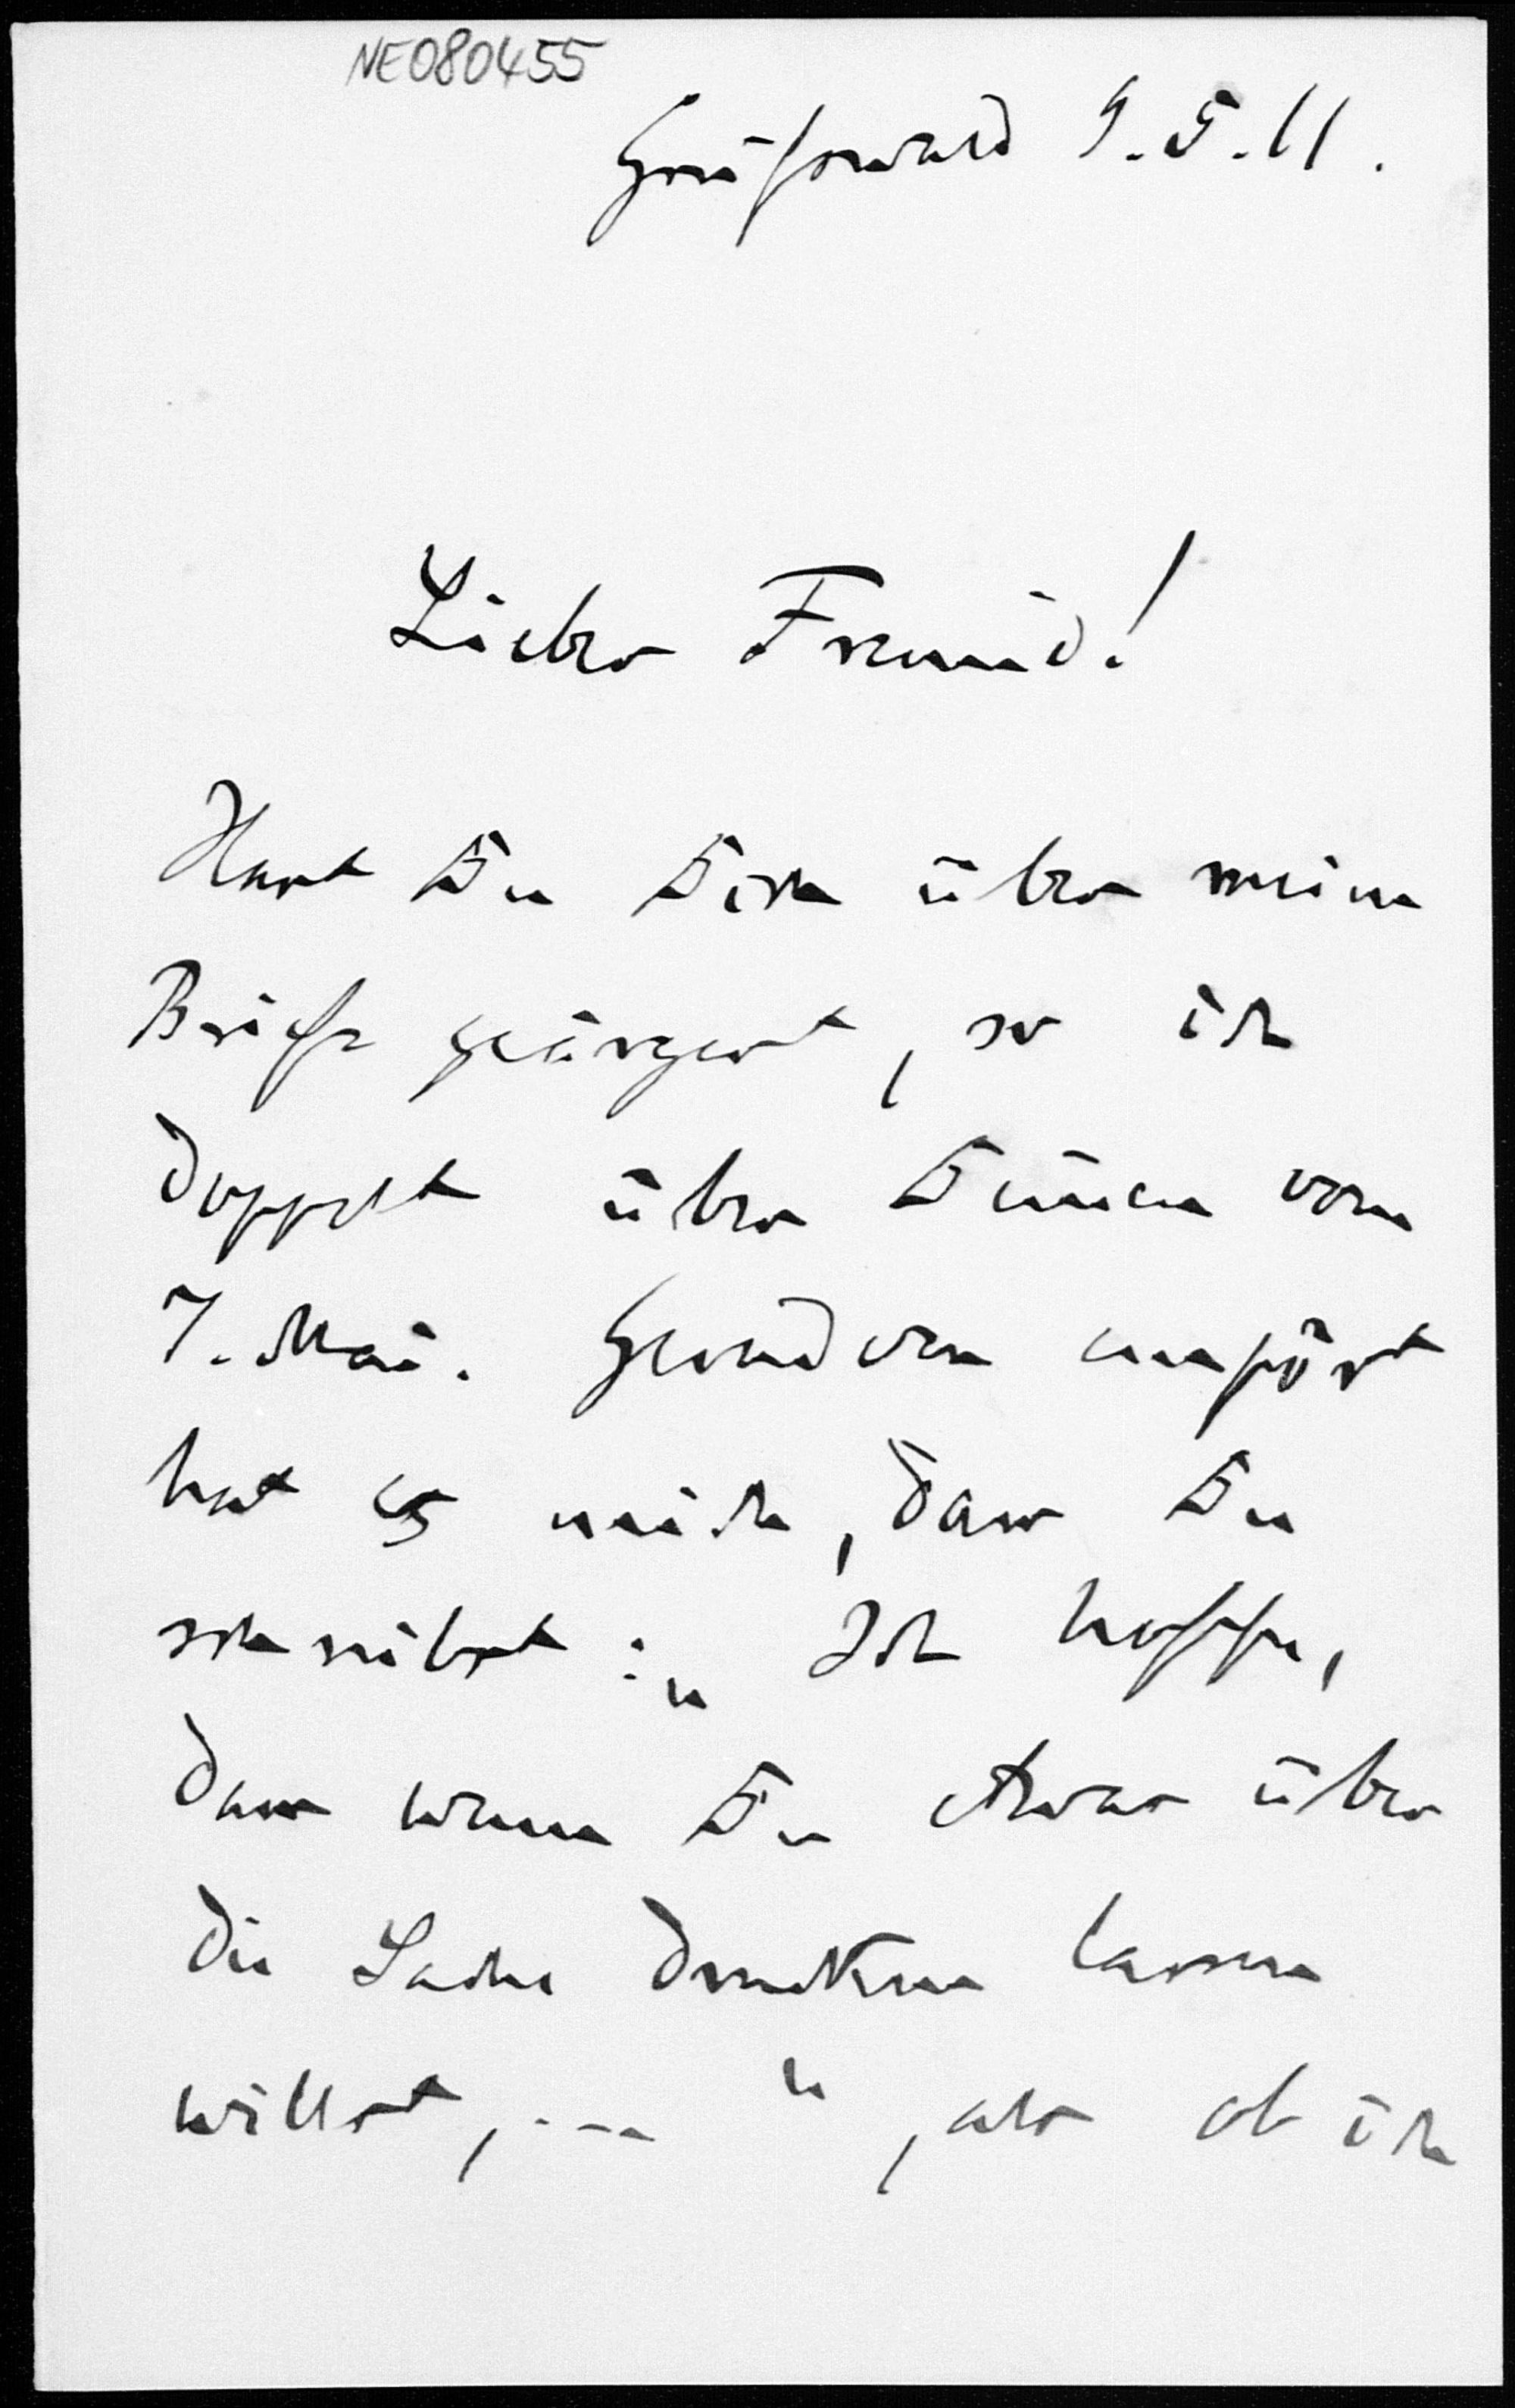 NE080455
Greifswald 9.5.11.
Lieber Freund!
Hast Du Dich über meine
Briefe geärgert, so ich
doppelt über Deinen vom
7. Mai. Geradezu empört
hat es mich, dass Du
schreibst: „Ich hoffe,
dass wenn Du etwas über
die Sache drucken lassen
willst, ---“, als ob ich